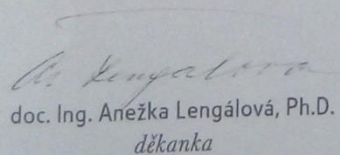 A. Lengalova
doc. Ing. Anežka Lengálová, Ph.D.
děkanka